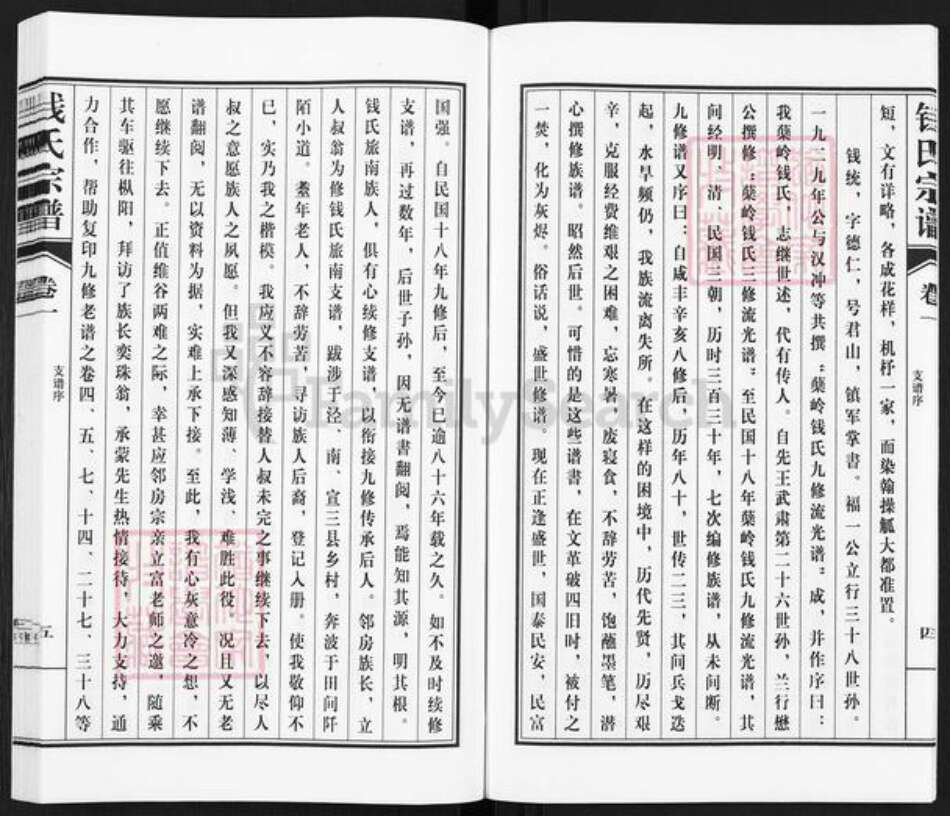 钱氏宗谱
卷一
支谱序
四
短，文有详略，各成花样，机杼一家，而染翰操觚大都准置。
钱统，字德仁，号君山，镇军掌書。福一公立行三十八世孙。
一九二九年公与汉冲等共撰“蘖岭钱氏九修流光谱”成，并作序曰：
我蘖岭钱氏，志继世述，代有传人。自先王武肃第二十六世孙，兰行懋
公撰修“蘖岭钱氏三修流光谱”至民国十八年蘖岭钱氏九修流光谱，其
间经明、清、民国三朝，历时三百三十年，七次编修族谱，从未间断。
九修谱又序曰：自咸丰辛亥八修后，历年八十，世传二三，其间兵戈迭
起，水旱频仍，我族流离失所。在这样的困境中，历代先贤，历尽艰
辛，克服经费维艰之困难，忘寒暑、废寝食，不辞劳苦，饱蘸墨笔，潜
心撰修族谱。昭然后世。可惜的是这些谱書，在文革破四旧时，被付之
一焚，化为灰烬。俗话说，盛世修谱。现在正逢盛世，国泰民安，民富
国强。自民国十八年九修后，至今已逾八十六年载之久。如不及时续修
支谱，再过数年，后世子孙，因无谱書翻阅，焉能知其源，明其根。
钱氏旅南族人，俱有心续修支谱，以衔接九修传承后人。邻房族长，立
人叔翁为修钱氏旅南支谱，跋涉于泾、南、宣三县乡村，奔波于田间阡
陌小道。耄年老人，不辞劳苦，寻访族人后裔，登记入册。使我敬仰不
已，实乃我之楷模。我应义不容辞接替人叔未完之事继续下去，以尽人
叔之意愿族人之夙愿。但我又深感知薄、学浅、难胜此役，况且又无老
谱翻阅，无以资料为据，实难上承下接。至此，我有心灰意冷之想，不
愿继续下去。正值维谷两难之际，幸甚应邻房宗亲立富老师之邀，随乘
其车驱往枞阳，拜访了族长奕珠翁，承蒙先生热情接待，大力支持，通
力合作，帮助复印九修老谱之卷四、五、七、十四、二十七、三十八等
钱氏宗谱
卷一
支谱序
五
FamilySearch